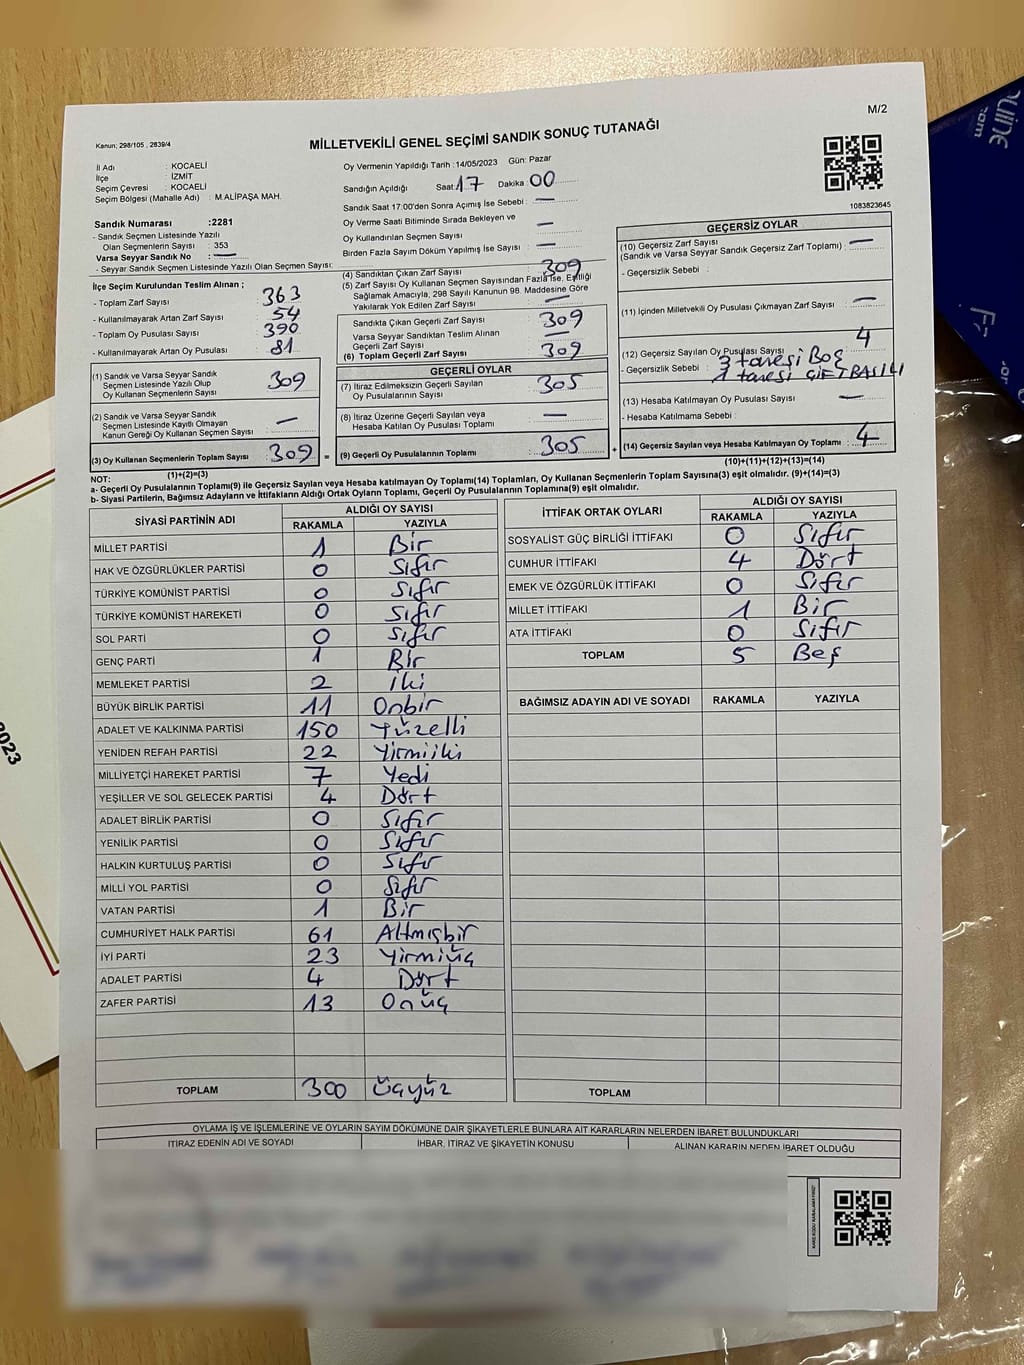 M/2
Kanun; 298/105 , 2839/4
MİLLETVEKİLİ GENEL SEÇİMİ SANDIK SONUÇ TUTANAĞI
İl Adı : KOCAELİ
İlçe : İZMİT
Seçim Çevresi : KOCAELİ
Seçim Bölgesi (Mahalle Adı) : M.ALİPAŞA MAH.
Oy Vermenin Yapıldığı Tarih :14/05/2023 Gün: Pazar
Sandığın Açıldığı Saat 17 Dakika : 00
Sandık Saat 17:00'den Sonra Açımış İse Sebebi : —
Oy Verme Saati Bitiminde Sırada Bekleyen ve
Oy Kullandırılan Seçmen Sayısı —
Birden Fazla Sayım Döküm Yapılmış İse Sayısı : —
1083823645
Sandık Numarası :2281
- Sandık Seçmen Listesinde Yazılı
Olan Seçmenlerin Sayısı : 353
Varsa Seyyar Sandık No : —
- Seyyar Sandık Seçmen Listesinde Yazılı Olan Seçmen Sayısı:
İlçe Seçim Kurulundan Teslim Alınan ;
- Toplam Zarf Sayısı : 363
- Kullanılmayarak Artan Zarf Sayısı : 54
- Toplam Oy Pusulası Sayısı : 390
- Kullanılmayarak Artan Oy Pusulası : 81
(1) Sandık ve Varsa Seyyar Sandık
Seçmen Listesinde Yazılı Olup
Oy Kullanan Seçmenlerin Sayısı 309
(2) Sandık ve Varsa Seyyar Sandık
Seçmen Listesinde Kayıtlı Olmayan
Kanun Gereği Oy Kullanan Seçmen Sayısı : —
(3) Oy Kullanan Seçmenlerin Toplam Sayısı : 309 =
(1)+(2)=(3)
(4) Sandıktan Çıkan Zarf Sayısı : 309
(5) Zarf Sayısı Oy Kullanan Seçmen Sayısından Fazla İse, Eşitliği
Sağlamak Amacıyla, 298 Sayılı Kanunun 98. Maddesine Göre
Yakılarak Yok Edilen Zarf Sayısı : —
Sandıkta Çıkan Geçerli Zarf Sayısı : 309
Varsa Seyyar Sandıktan Teslim Alınan
Geçerli Zarf Sayısı : —
(6) Toplam Geçerli Zarf Sayısı : 309
GEÇERLİ OYLAR
(7) İtiraz Edilmeksizin Geçerli Sayılan
Oy Pusulalarının Sayısı : 305
(8) İtiraz Üzerine Geçerli Sayılan veya
Hesaba Katılan Oy Pusulası Toplamı : —
(9) Geçerli Oy Pusulalarının Toplamı : 305 +
GEÇERSİZ OYLAR
(10) Geçersiz Zarf Sayısı
(Sandık ve Varsa Seyyar Sandık Geçersiz Zarf Toplamı) : —
- Geçersizlik Sebebi :
(11) İçinden Milletvekili Oy Pusulası Çıkmayan Zarf Sayısı : —
(12) Geçersiz Sayılan Oy Pusulası Sayısı : 4
- Geçersizlik Sebebi : 3 tanesi Boş
1 tanesi ÇİFT BASILI
(13) Hesaba Katılmayan Oy Pusulası Sayısı : —
- Hesaba Katılmama Sebebi :
(14) Geçersiz Sayılan veya Hesaba Katılmayan Oy Toplamı : 4
(10)+(11)+(12)+(13)=(14)
NOT:
a- Geçerli Oy Pusulalarının Toplamı(9) ile Geçersiz Sayılan veya Hesaba Katılmayan Oy Toplamı(14) Toplamları, Oy Kullanan Seçmenlerin Toplam Sayısına(3) eşit olmalıdır. (9)+(14)=(3)
b- Siyasi Partilerin, Bağımsız Adayların ve İttifakların Aldığı Ortak Oyların Toplamı, Geçerli Oy Pusulalarının Toplamına(9) eşit olmalıdır.
SİYASİ PARTİNİN ADI ALDIĞI OY SAYISI
RAKAMLA YAZIYLA
MİLLET PARTİSİ 1 Bir
HAK VE ÖZGÜRLÜKLER PARTİSİ 0 Sıfır
TÜRKİYE KOMÜNİST PARTİSİ 0 Sıfır
TÜRKİYE KOMÜNİST HAREKETİ 0 Sıfır
SOL PARTİ 0 Sıfır
GENÇ PARTİ 1 Bir
MEMLEKET PARTİSİ 2 iki
BÜYÜK BİRLİK PARTİSİ 11 Onbir
ADALET VE KALKINMA PARTİSİ 150 Yüzelli
YENİDEN REFAH PARTİSİ 22 Yirmiiki
MİLLİYETÇİ HAREKET PARTİSİ 7 Yedi
YEŞİLLER VE SOL GELECEK PARTİSİ 4 Dört
ADALET BİRLİK PARTİSİ 0 Sıfır
YENİLİK PARTİSİ 0 Sıfır
HALKIN KURTULUŞ PARTİSİ 0 Sıfır
MİLLİ YOL PARTİSİ 0 Sıfır
VATAN PARTİSİ 1 Bir
CUMHURİYET HALK PARTİSİ 61 Altmışbir
İYİ PARTİ 23 Yirmiüç
ADALET PARTİSİ 4 Dört
ZAFER PARTİSİ 13 Onüç
TOPLAM 300 Üçyüz
İTTİFAK ORTAK OYLARI ALDIĞI OY SAYISI
RAKAMLA YAZIYLA
SOSYALİST GÜÇ BİRLİĞİ İTTİFAKI 0 Sıfır
CUMHUR İTTİFAKI 4 Dört
EMEK VE ÖZGÜRLÜK İTTİFAKI 0 Sıfır
MİLLET İTTİFAKI 1 Bir
ATA İTTİFAKI 0 Sıfır
TOPLAM 5 Beş
BAĞIMSIZ ADAYIN ADI VE SOYADI RAKAMLA YAZIYLA
TOPLAM
OYLAMA İŞ VE İŞLEMLERİNE VE OYLARIN SAYIM DÖKÜMÜNE DAİR ŞİKAYETLERLE BUNLARA AİT KARARLARIN NELERDEN İBARET BULUNDUKLARI
İTİRAZ EDENİN ADI VE SOYADI İHBAR, İTİRAZ VE ŞİKAYETİN KONUSU ALINAN KARARIN NEDEN İBARET OLDUĞU
2023